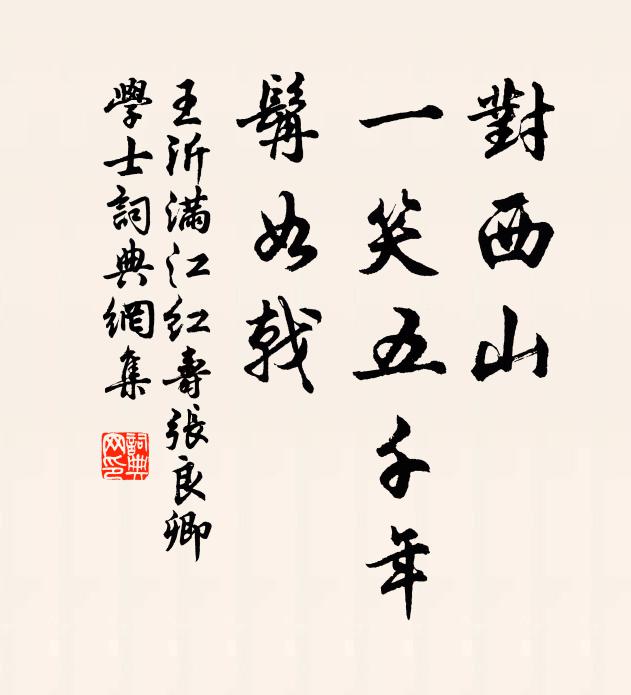 對西山
一笑五千年
髯如戟
王沂滿江红壽張良卿
學士詞典網集
詞典网印